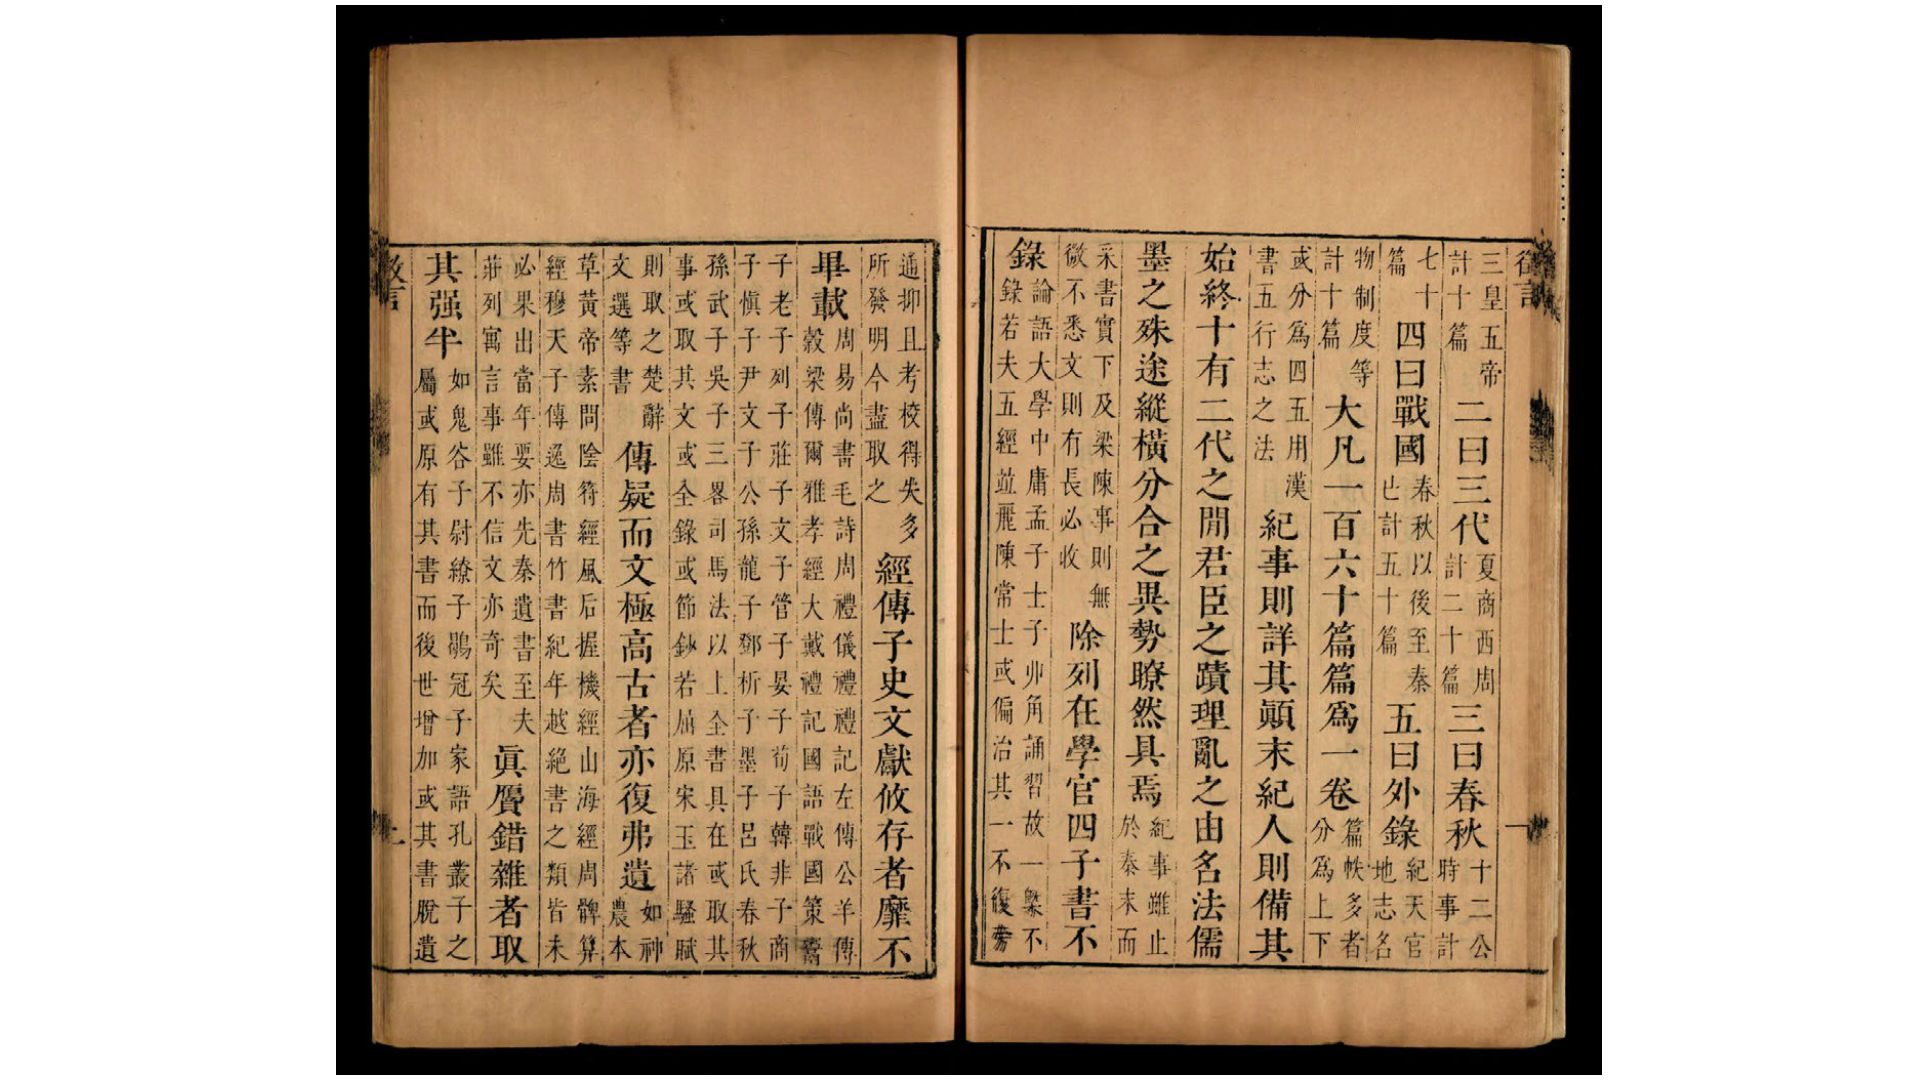 徵言 一
三皇五帝計十篇二曰三代夏商西周計二十篇三曰春秋十二公時事計
七十篇四曰戰國春秋以後至秦亡計五十篇五曰外錄紀天官地志名
物制度等計十篇大凡一百六十篇篇爲一卷篇帙多者分爲上下
或分爲四五用漢書五行志之法紀事則詳其顛末紀人則備其
始終十有二代之閒君臣之蹟理亂之由名法儒
墨之殊途縱橫分合之異勢瞭然具焉紀事雖止於秦末而
采書實下及梁陳事則無微不悉文則有長必收除列在學官四子書不
錄論語大學中庸孟子士子丱角誦習故一槩不錄若夫五經竝麗陳常士或偏治其一不復旁
通抑且考校得失多所發明今盡取之經傳子史文獻攸存者靡不
畢載周易尚書毛詩周禮儀禮禮記左傳公羊傳穀梁傳爾雅孝經大戴禮記國語戰國策鬻
子老子列子莊子文子管子晏子荀子韓非子商子慎子尹文子公孫龍子鄧析子墨子呂氏春秋
孫武子吳子三畧司馬法以上全書具在或取其事或取其文或全錄或節鈔若屈原宋玉諸騷賦
則取之楚辭文選等書傳疑而文極高古者亦復弗遺如神農本
草黃帝素問陰符經風后握機經山海經周髀算經穆天子傳逸周書竹書紀年越絕書之類皆未
必果出當年要亦先秦遺書至夫莊列寓言事雖不信文亦奇矣眞贗錯雜者取
其强半如鬼谷子尉繚子鶡冠子家語孔叢子之屬或原有其書而後世增加或其書脫遺
徵言